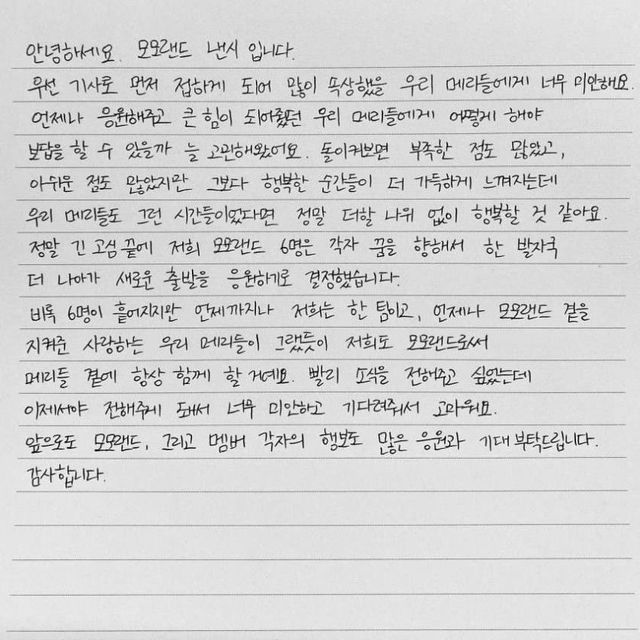 안녕하세요. 모모랜드 낸시 입니다.
우선 기사로 먼저 접하게 되어 많이 속상했을 우리 메리들에게 너무 미안해요.
언제나 응원해주고 큰 힘이 되어줬던 우리 메리들에게 어떻게 해야
보답을 할 수 있을까 늘 고민해왔어요. 돌이켜보면 부족한 점도 많았고,
아쉬운 점도 많았지만 그보다 행복한 순간들이 더 가득하게 느껴지는데
우리 메리들도 그런 시간들이었다면 정말 더할 나위 없이 행복할 것 같아요.
정말 긴 고심 끝에 저희 모모랜드 6명은 각자 꿈을 향해서 한 발자국
더 나아가 새로운 출발을 응원하기로 결정했습니다.
비록 6명이 흩어지지만 언제까지나 저희는 한 팀이고, 언제나 모모랜드 곁을
지켜준 사랑하는 우리 메리들이 그랬듯이 저희도 모모랜드로써
메리들 곁에 항상 함께 할 거예요. 빨리 소식을 전해주고 싶었는데
이제서야 전해주게 돼서 너무 미안하고 기다려줘서 고마워요.
앞으로도 모모랜드, 그리고 멤버 각자의 행보도 많은 응원과 기대 부탁드립니다.
감사합니다.